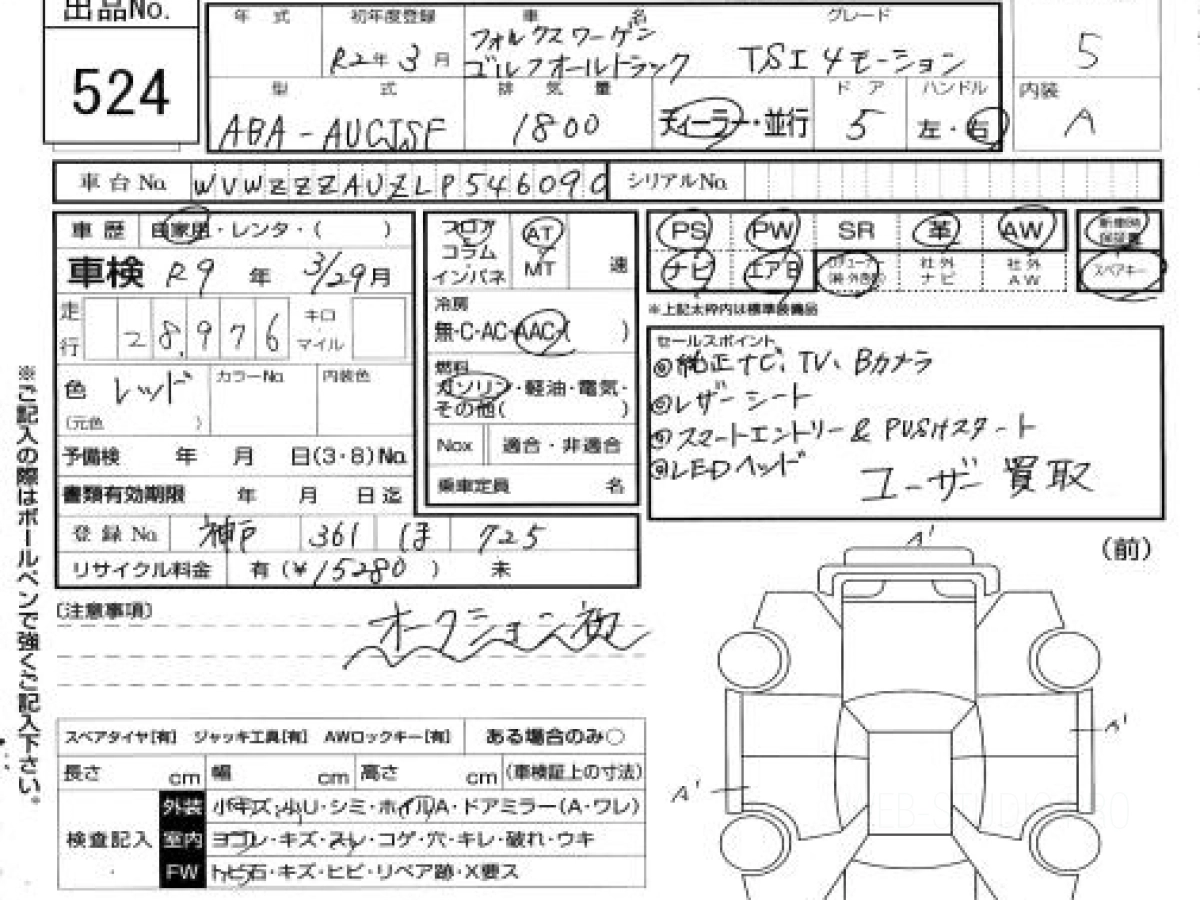 出品No.
524
年 式 初年度登録 車 名 グレード
R2年 3月 フォルクスワーゲン
ゴルフオールトラック TSI 4モーション 5
型 式 排 気 量 ドア ハンドル 内装
ABA-AUCJSF 1800 ディーラー・並行 5 左・右 A
車台No. WVWZZZAUZLP546090 シリアルNo.
車歴 自家用・レンタ・( )
車検 R9 年 3/29月
走行 28,976 キロ マイル
色 レッド カラーNo. 内装色
(元色 )
予備検 年 月 日(3・8)No.
書類有効期限 年 月 日迄
登録No. 神戸 361 ほ 725
リサイクル料金 有(¥15280 ) 未
フロア AT
コラム MT 速
インパネ
冷房
無-C-AC-AAC-( )
燃料
ガソリン・軽油・電気・
その他( )
Nox 適合・非適合
乗車定員 名
PS PW SR 革 AW 新車時保証書
ナビ エアB 社外ナビ 社外AW スペアキー
※上記太枠内は標準装備品
セールスポイント
◎純正ナビ、TV、Bカメラ
◎レザーシート
◎スマートエントリー & PUSHスタート
◎LEDヘッド ユーザー買取
(前)
A'
A'
A'
(注意事項)
オークション初
※ご記入の際はボールペンで強くご記入下さい。
スペアタイヤ[有] ジャッキ工具[有] AWロックキー[有] ある場合のみ○
長さ cm 幅 cm 高さ cm (車検証上の寸法)
検査記入
外装 小キズ・小U・シミ・ホイルA・ドアミラー(A・ワレ)
室内 ヨゴレ・キズ・スレ・コゲ・穴・キレ・破れ・ウキ
FW トビ石・キズ・ヒビ・リペア跡・X要ス